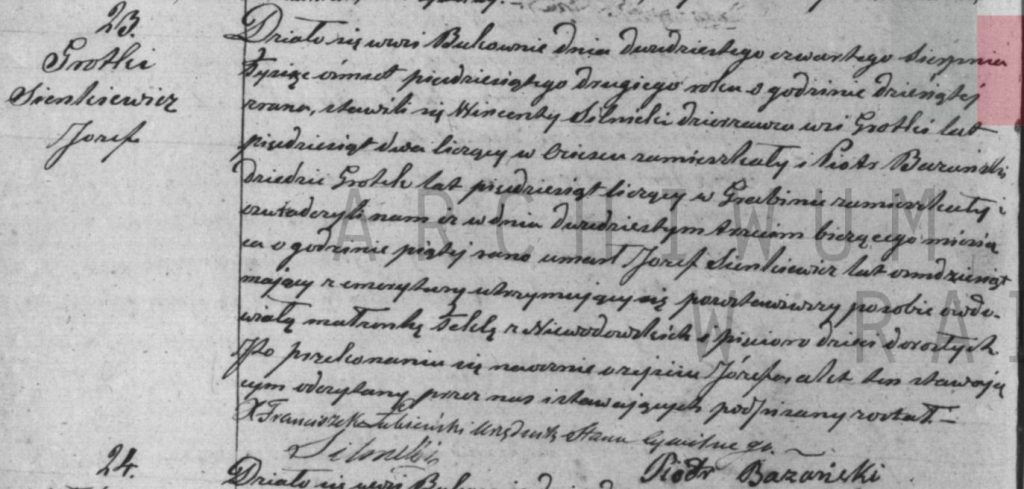 23.
Grotki
Sienkiewicz
Jozef
Działo się wwsi Bukownie dnia dwudziestego czwartego Sierpnia
tysiąc ośmset pięćdziesiątego drugiego roku o godzinie dziesiątej
zrana, stawili się Wincenty Silnicki dzierzawca wsi Grotki lat
pięćdziesiąt dwa liczący w zamieszkały i Piotr Bazański
dziedzic Grotek lat pięćdziesiąt liczący w Grabinie zamieszkały i
oswiadczyli nam iz w dniu dwudziestym trzecim bieżącego miesią
ca o godzinie piątej rano umarł Jozef Sienkiewicz lat ośmdziesiąt
mający z emerytury utrzymujący się pozostawiwszy po sobie owdo-
wiałą małronkę Teklę z Niewodowskich i pięcioro dzieci dorosłych
Po przekonaniu się naocznie o zejściu Józefa akt ten stawają
cym odczytany przez nas i stawających podpisany został. –
X Franciszek Łubieński Urzędnik Stanu Cywilnego.
Silnicki
Piotr Bazański
24.
Działo się wwsi Bukownie dnia
ARCHIWUM
W RA